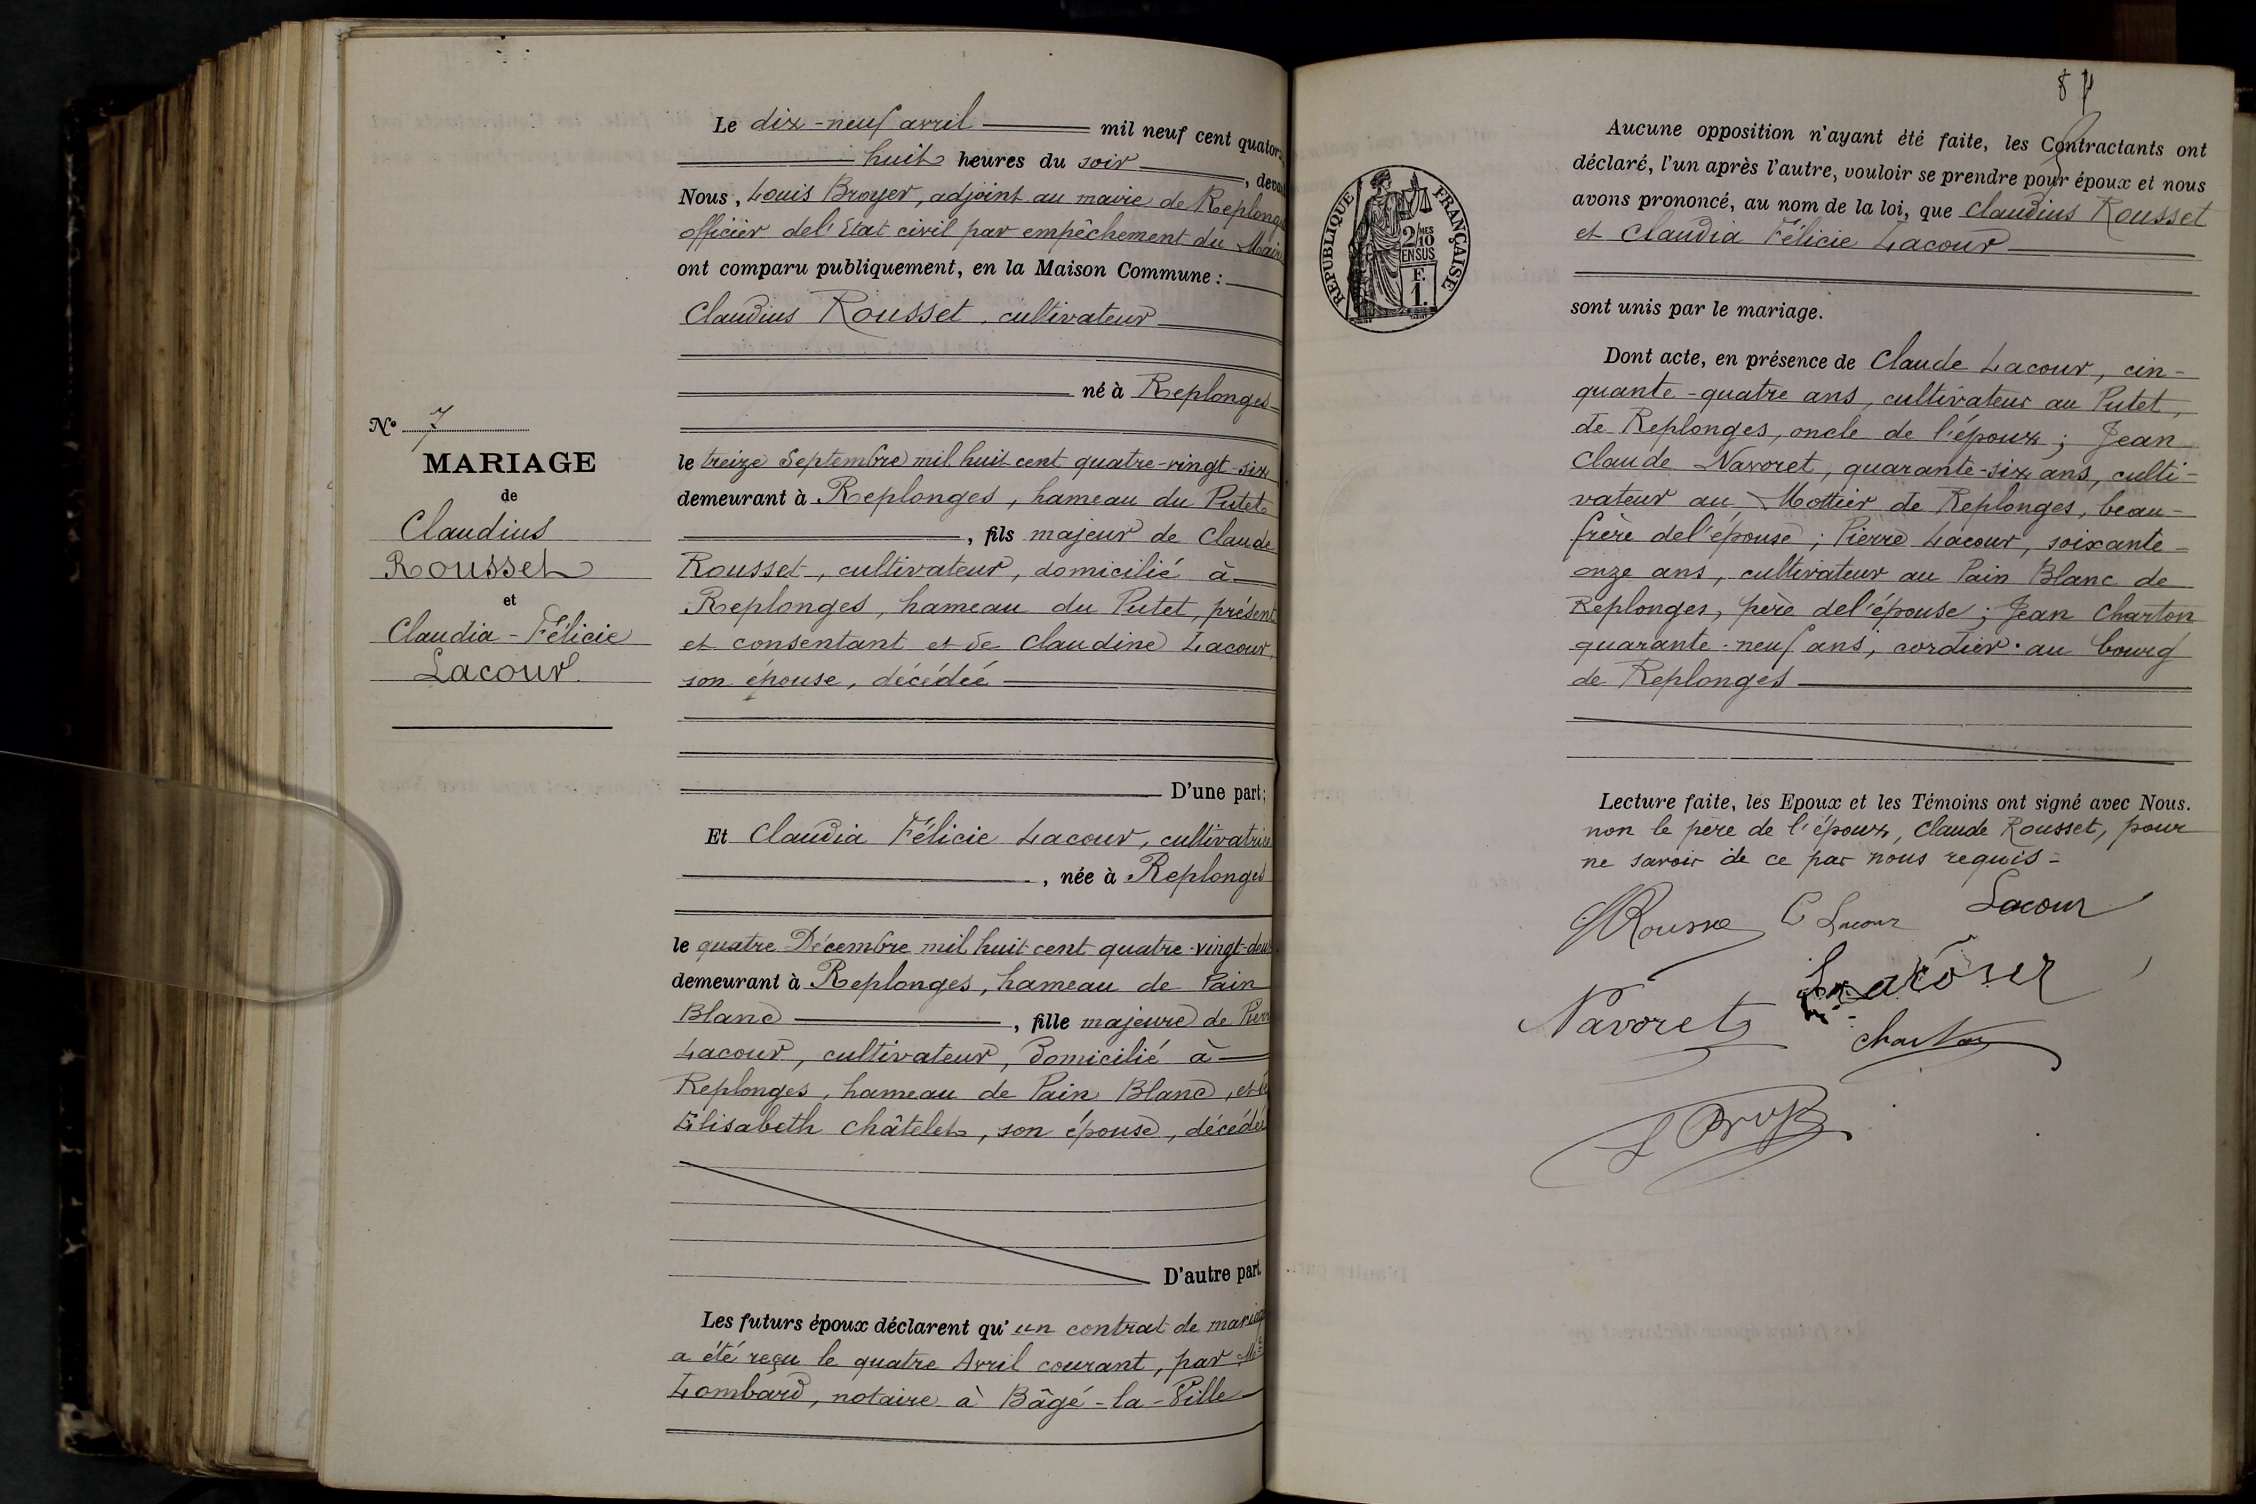 Le dix-neuf avril mil neuf cent quator
huit heures du soir , deva
Nous, Louis Broyer, adjoint au maire de Replonge
officier de l'Etat civil par empêchement du Maire
ont comparu publiquement, en la Maison Commune :
Claudius Rousset, cultivateur
né à Replonges
le treize Septembre mil huit cent quatre-vingt-six
demeurant à Replonges, hameau du Putet
, fils majeur de Claude
Rousset, cultivateur, domicilié à
Replonges, hameau du Putet, présent
et consentant et de Claudine Lacour,
son épouse, décédée
D'une part;
Et Claudia Félicie Lacour, cultivatrice
, née à Replonges
le quatre Décembre mil huit cent quatre-vingt-deux
demeurant à Replonges, hameau de Pain
Blanc , fille majeure de Pierre
Lacour, cultivateur, domicilié à
Replonges, hameau de Pain Blanc, et de
Elisabeth Châtelet, son épouse, décédée
D'autre part.
Les futurs époux déclarent qu'un contrat de mariage
a été reçu le quatre Avril courant, par Me
Lombard, notaire à Bâgé-la-Ville
N° 7
MARIAGE
de
Claudius
Rousset
et
Claudia-Félicie
Lacour
REPUBLIQUE FRANÇAISE
2/10 MES
EN SUS
F.
1.
Aucune opposition n'ayant été faite, les Contractants ont
déclaré, l'un après l'autre, vouloir se prendre pour époux et nous
avons prononcé, au nom de la loi, que Claudius Rousset
et Claudia Félicie Lacour
sont unis par le mariage.
Dont acte, en présence de Claude Lacour, cin-
quante-quatre ans, cultivateur au Putet,
de Replonges, oncle de l'époux; Jean
Claude Navoret, quarante-six ans, culti-
vateur au Mottier de Replonges, beau-
frère de l'épouse; Pierre Lacour, soixante-
onze ans, cultivateur au Pain Blanc de
Replonges, père de l'épouse; Jean Charton
quarante-neuf ans, cordier au bourg
de Replonges
Lecture faite, les Epoux et les Témoins ont signé avec Nous.
non le père de l'époux, Claude Rousset, pour
ne savoir de ce par nous requis=
C Lacour Lacour
Navoret Lacour
Charton